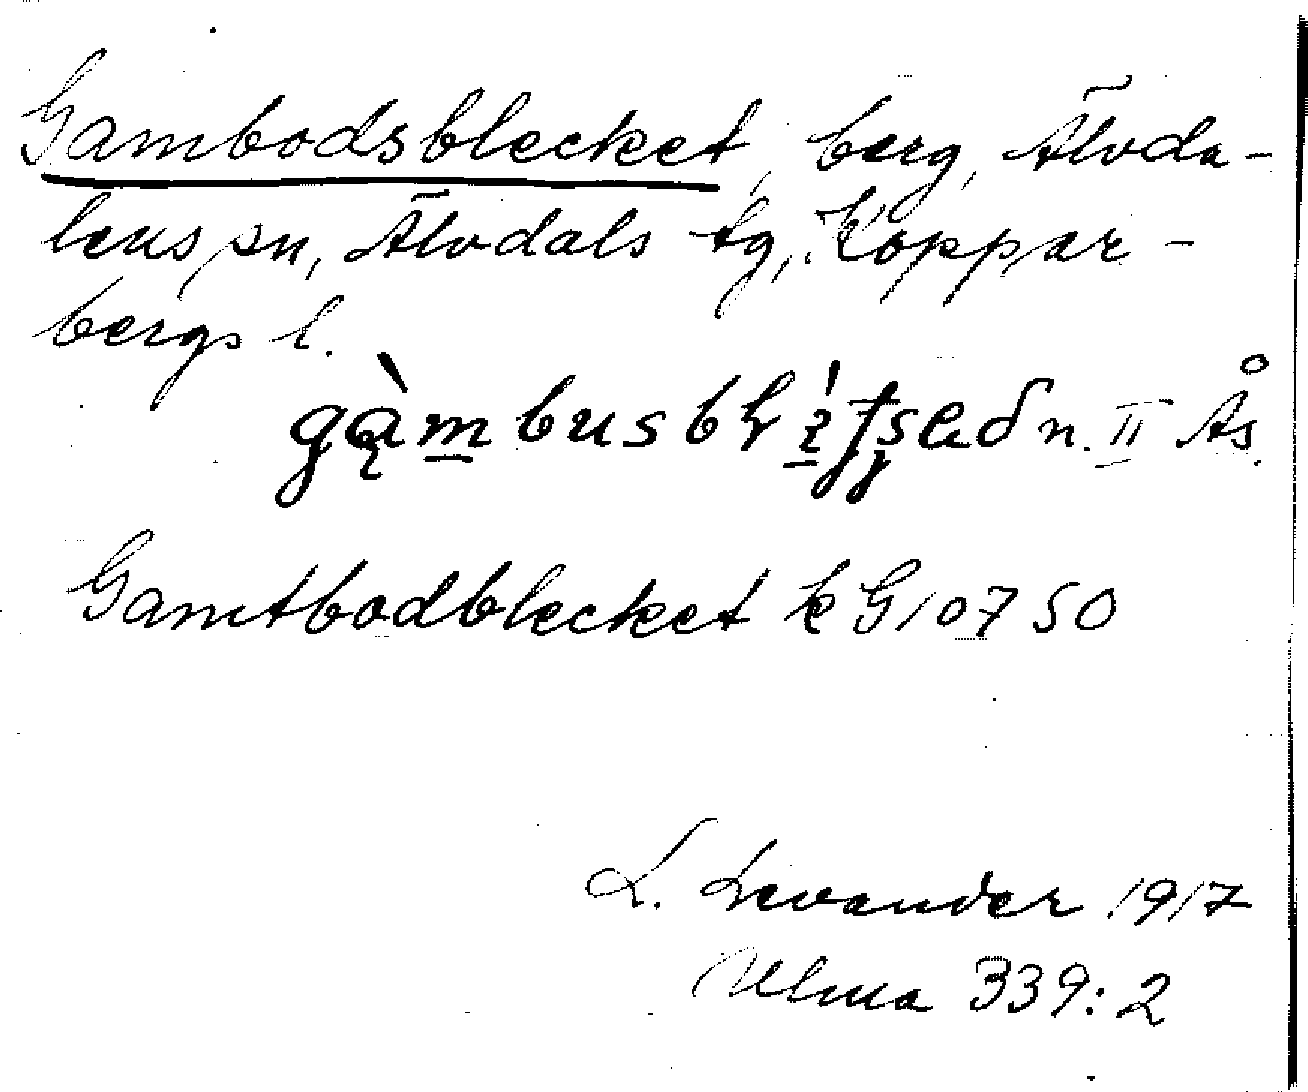 Gambodsblecket, berg, Älvda-
lens sn, Älvdals tg, Koppar-
bergs l.
n. II Ås.
Gamtbodblecket k G 10750
L. Levander 1917
Ulma 339:2